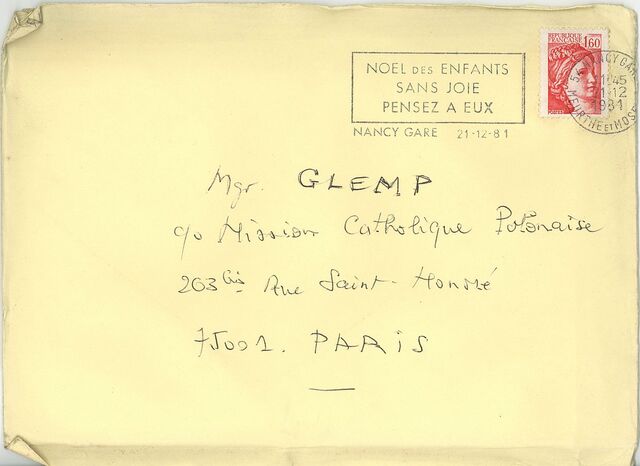 NOEL DES ENFANTS
SANS JOIE
PENSEZ A EUX
NANCY GARE 21-12-81
REPUBLIQUE
FRANCAISE 1,60
NANCY GARE
1981
MEURTHE ET MOSE
Mgr. GLEMP
c/o Mission Catholique Polonaise
263 bis Rue Saint-Honoré
75001. PARIS